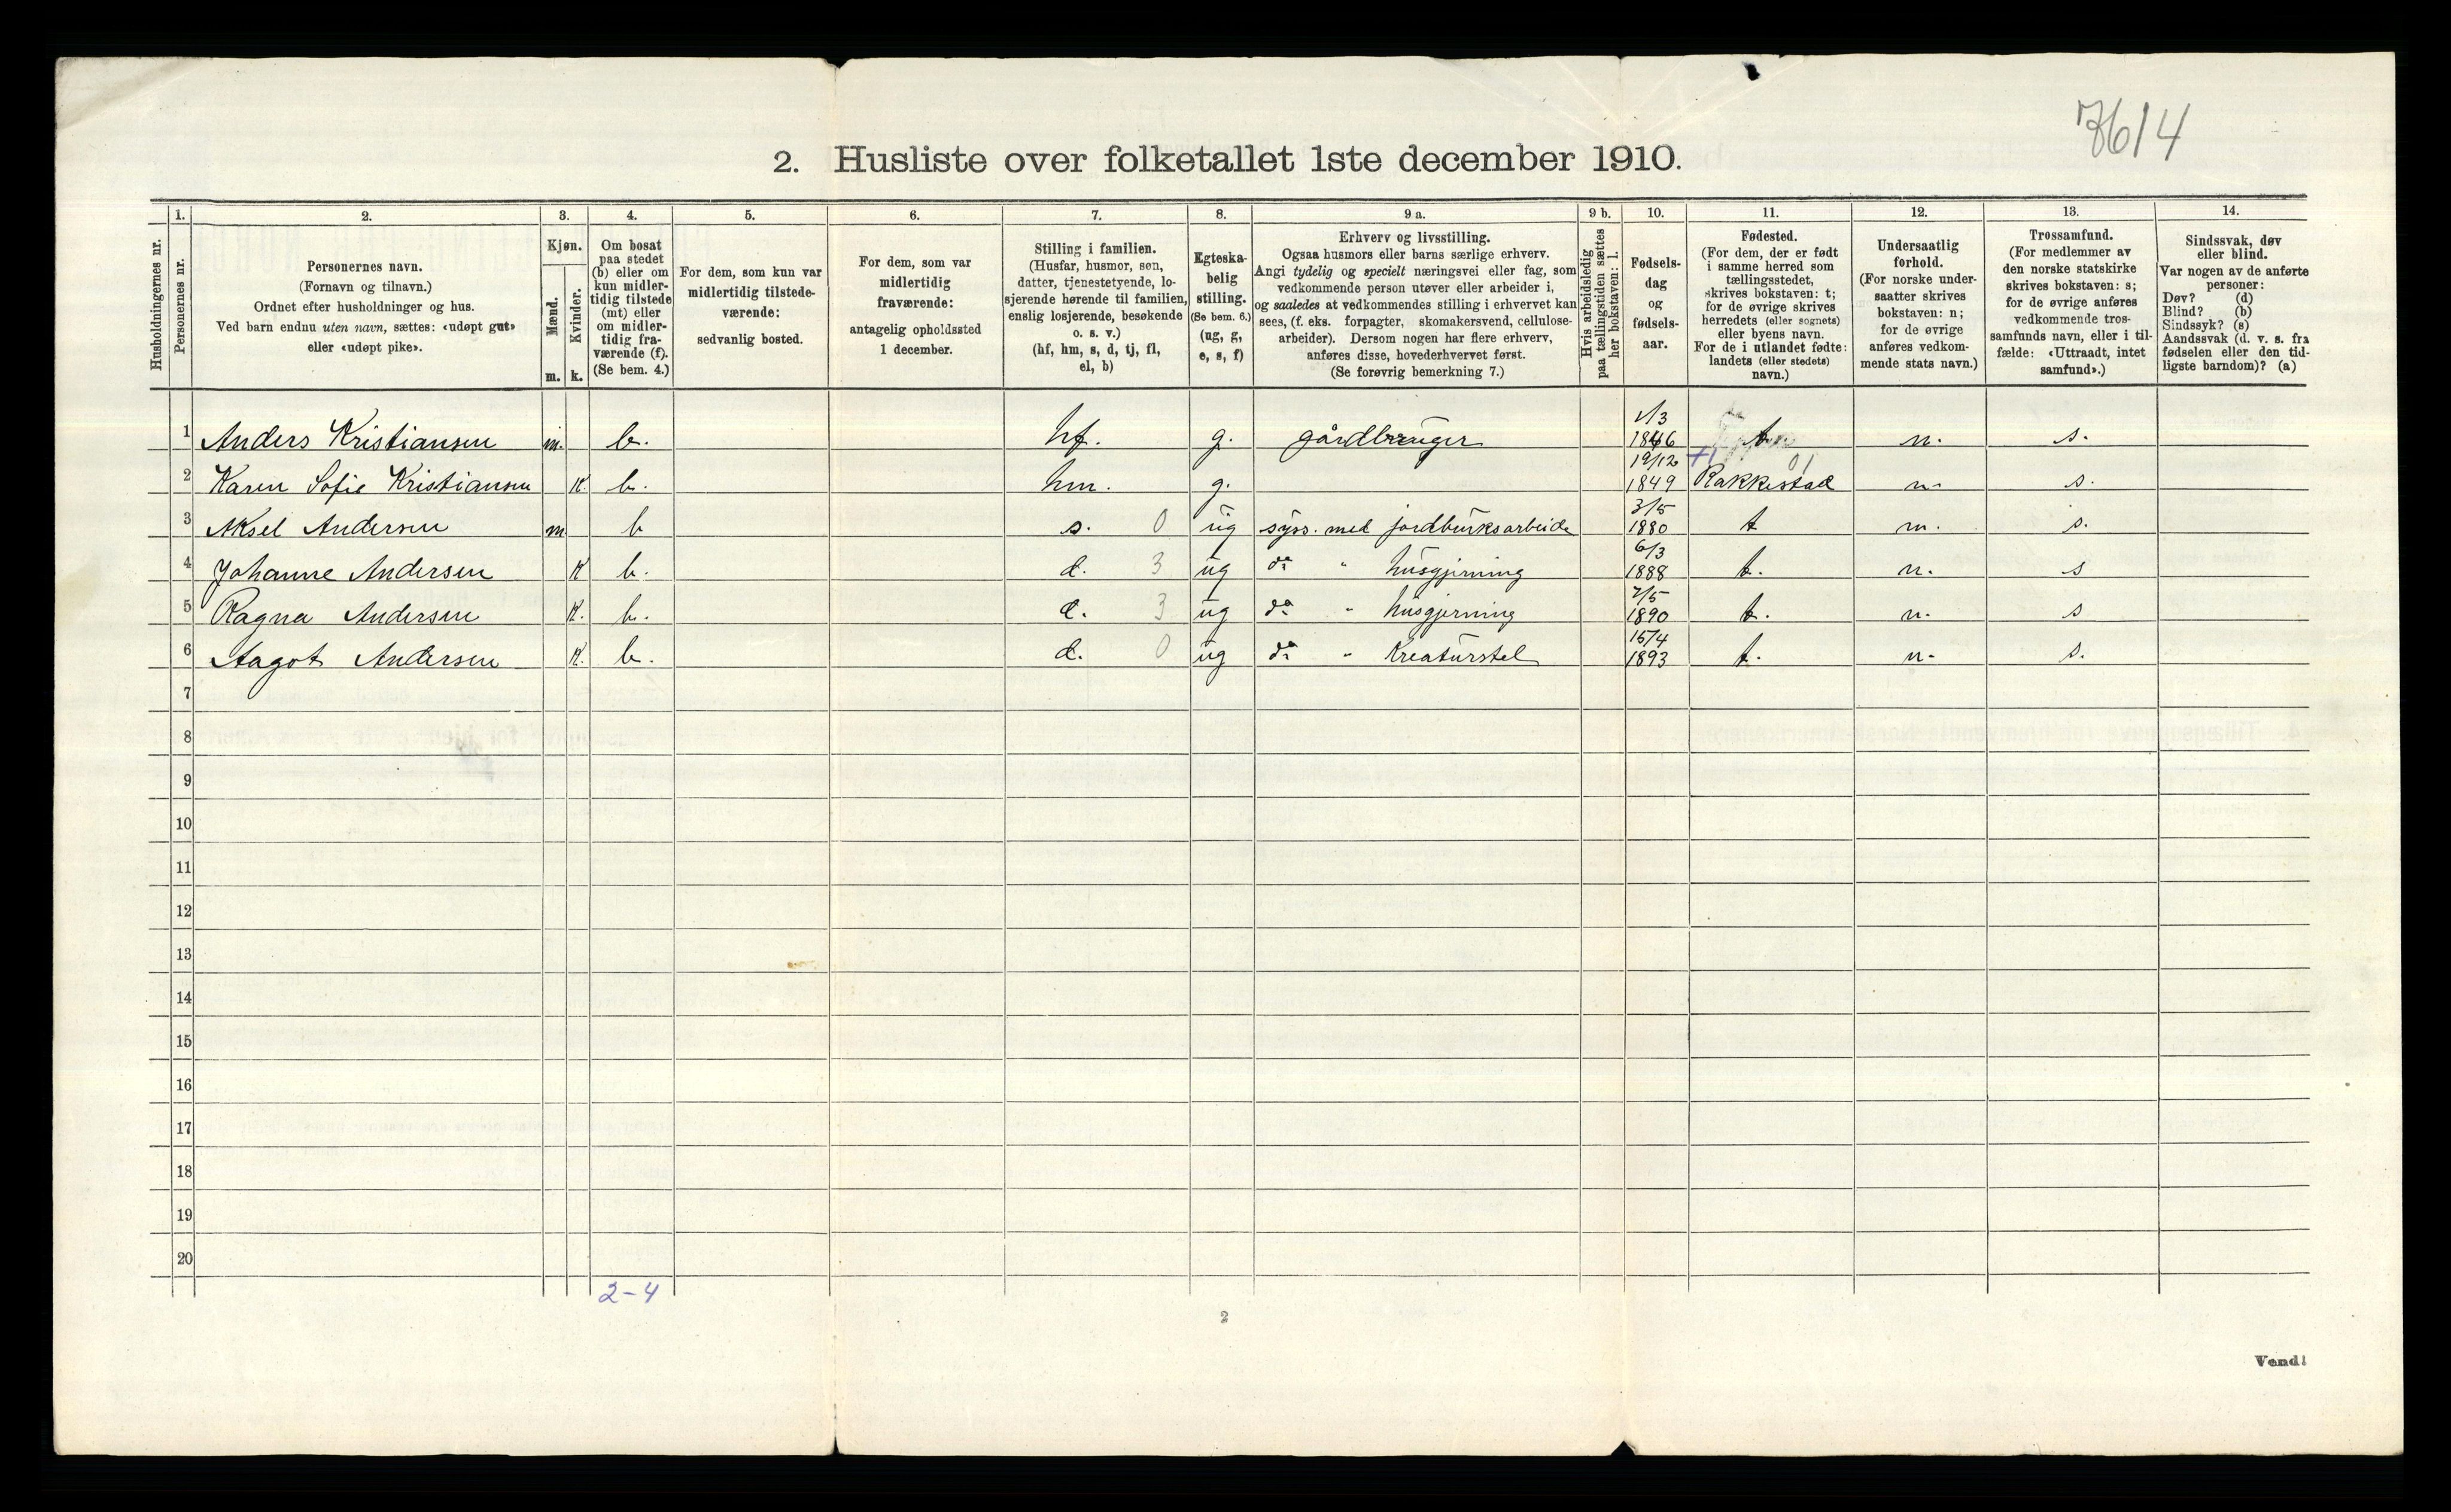 7614
2. Husliste over folketallet 1ste december 1910.
1. 2. 3. 4. 5. 6. 7. 8. 9 a. 9 b. 10. 11. 12. 13. 14.
Husholdningernes nr.
Personernes nr.
Personernes navn.
(Fornavn og tilnavn.)
Ordnet efter husholdninger og hus.
Ved barn endnu uten navn, sættes: «udøpt gut»
eller «udøpt pike».
Kjøn.
Mænd.
Kvinder.
m. k.
Om bosat
paa stedet
(b) eller om
kun midler-
tidig tilstede
(mt) eller
om midler-
tidig fra-
værende (f).
(Se bem. 4.)
For dem, som kun var
midlertidig tilstede-
værende:
sedvanlig bosted.
For dem, som var
midlertidig
fraværende:
antagelig opholdssted
1 december.
Stilling i familien.
(Husfar, husmor, søn,
datter, tjenestetyende, lo-
sjerende hørende til familien,
enslig losjerende, besøkende
o. s. v.)
(hf, hm, s, d, tj, fl,
el, b)
Egteska-
belig
stilling.
(Se bem. 6.)
(ug, g,
e, s, f)
Erhverv og livsstilling.
Ogsaa husmors eller barns særlige erhverv.
Angi tydelig og specielt næringsvei eller fag, som
vedkommende person utøver eller arbeider i,
og saaledes at vedkommendes stilling i erhvervet kan
sees, (f. eks. forpagter, skomakersvend, cellulose-
arbeider). Dersom nogen har flere erhverv,
anføres disse, hovederhvervet først.
(Se forøvrig bemerkning 7.)
Hvis arbeidsledig
paa tællingstiden sættes
her bokstaven: l.
Fødsels-
dag
og
fødsels-
aar.
Fødested.
(For dem, der er født
i samme herred som
tællingsstedet,
skrives bokstaven: t;
for de øvrige skrives
herredets (eller sognets)
eller byens navn.
For de i utlandet fødte:
landets (eller stedets)
navn.)
Undersaatlig
forhold.
(For norske under-
saatter skrives
bokstaven: n;
for de øvrige
anføres vedkom-
mende stats navn.)
Trossamfund.
(For medlemmer av
den norske statskirke
skrives bokstaven: s;
for de øvrige anføres
vedkommende tros-
samfunds navn, eller i til-
fælde: «Uttraadt, intet
samfund».)
Sindssvak, døv
eller blind.
Var nogen av de anførte
personer:
Døv? (d)
Blind? (b)
Sindssyk? (s)
Aandssvak (d. v. s. fra
fødselen eller den tid-
ligste barndom)? (a)
1 Anders Kristiansen m. b. hf. g. gårdbruger 1/3 1846 t n. s.
2 Karen Sofie Kristiansen K. b. hm. g. 19/12 1849 Rakkestad 01 n. s.
3 Aksel Andersen m b s. 0 ug syss. med jordbruksarbeide 3/5 1880 t n. s.
4 Johanne Andersen K b. d. 3 ug do " husgjerning 6/3 1888 t. n. s
5 Ragna Andersen K. b. d. 3 ug do " husgjerning 7/5 1890 t. n. s
6 Aagot Andersen K. b. d. 0 ug do " Kreaturstel 15/4 1893 t. n. s.
7
8
9
10
11
12
13
14
15
16
17
18
19
20
2-4
2
Vend!